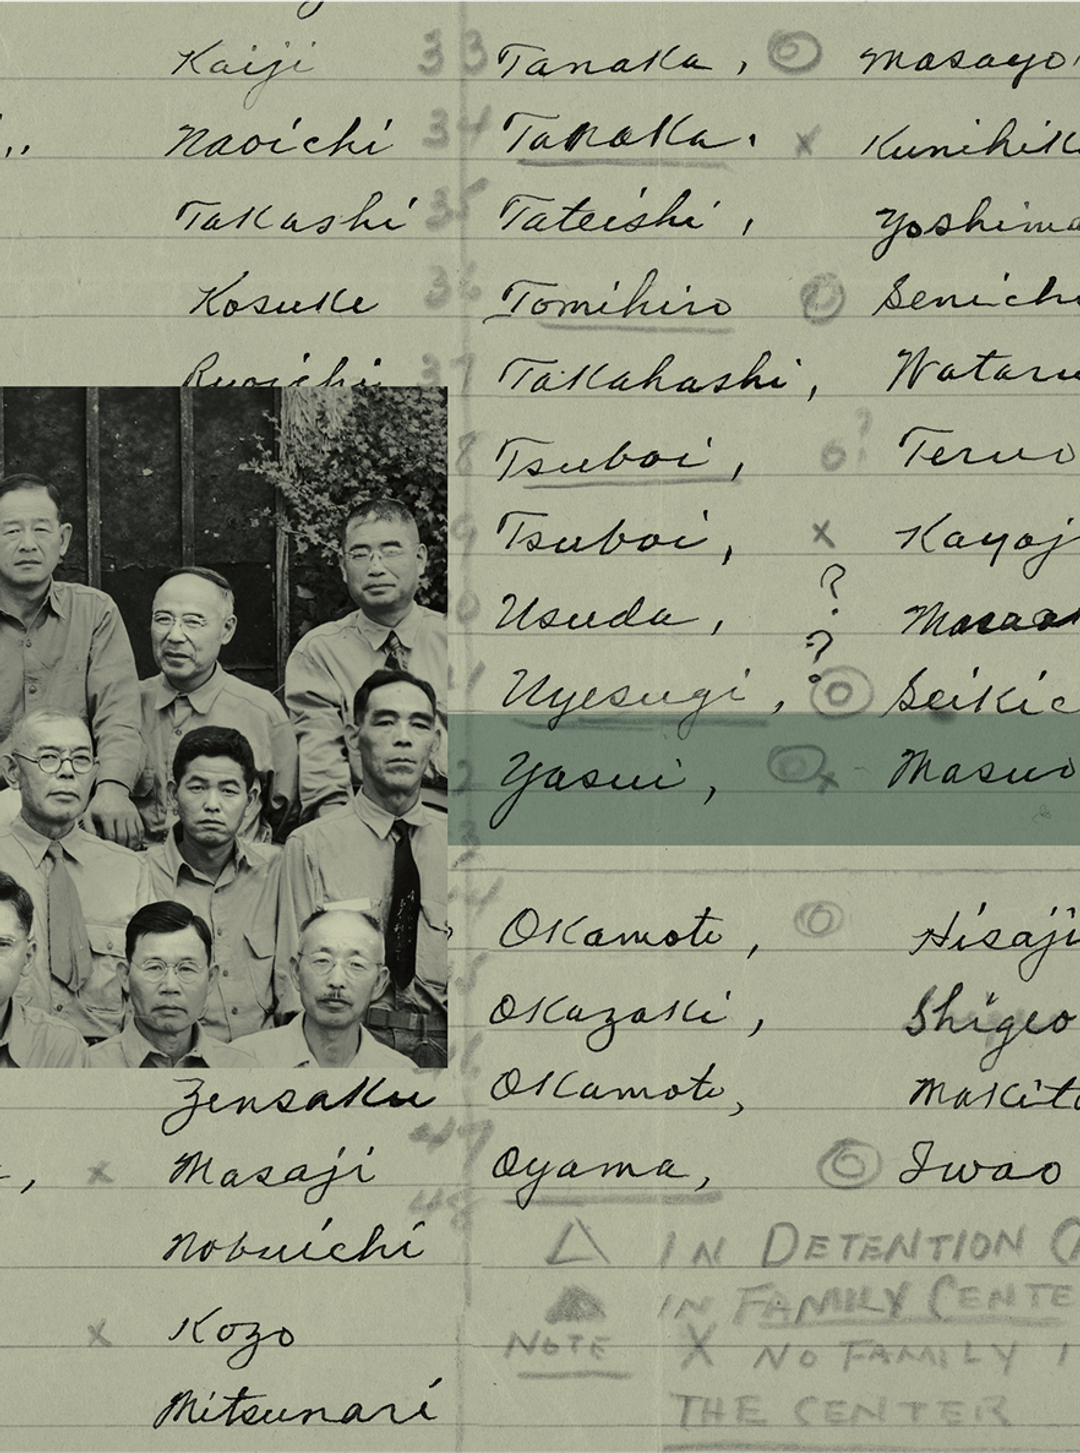 Kaiji 33 Tanaka, Masayo
,, Naoichi 34 Tanaka, x Kunihik
Takashi 35 Tateishi, Yoshima
Kosuke 36 Tomihiro Senichi
Ryoichi 37 Takahashi, Wataru
8 Tsuboi, o? Teruo
9 Tsuboi, x Kayoj
0 Usuda, ?
? Uyesugi, Seikic
2 Yasui, x Masuo
3
44 Okamoto, Hisaji
Okazaki, Shigeo
Zensaku 46 Okamoto, Makito
, x Masaji 47 Oyama, Iwao
48
Nobuichi △ IN DETENTION C
▲ IN FAMILY CENTE
x Kozo NOTE X NO FAMILY I
Mitsunari THE CENTER